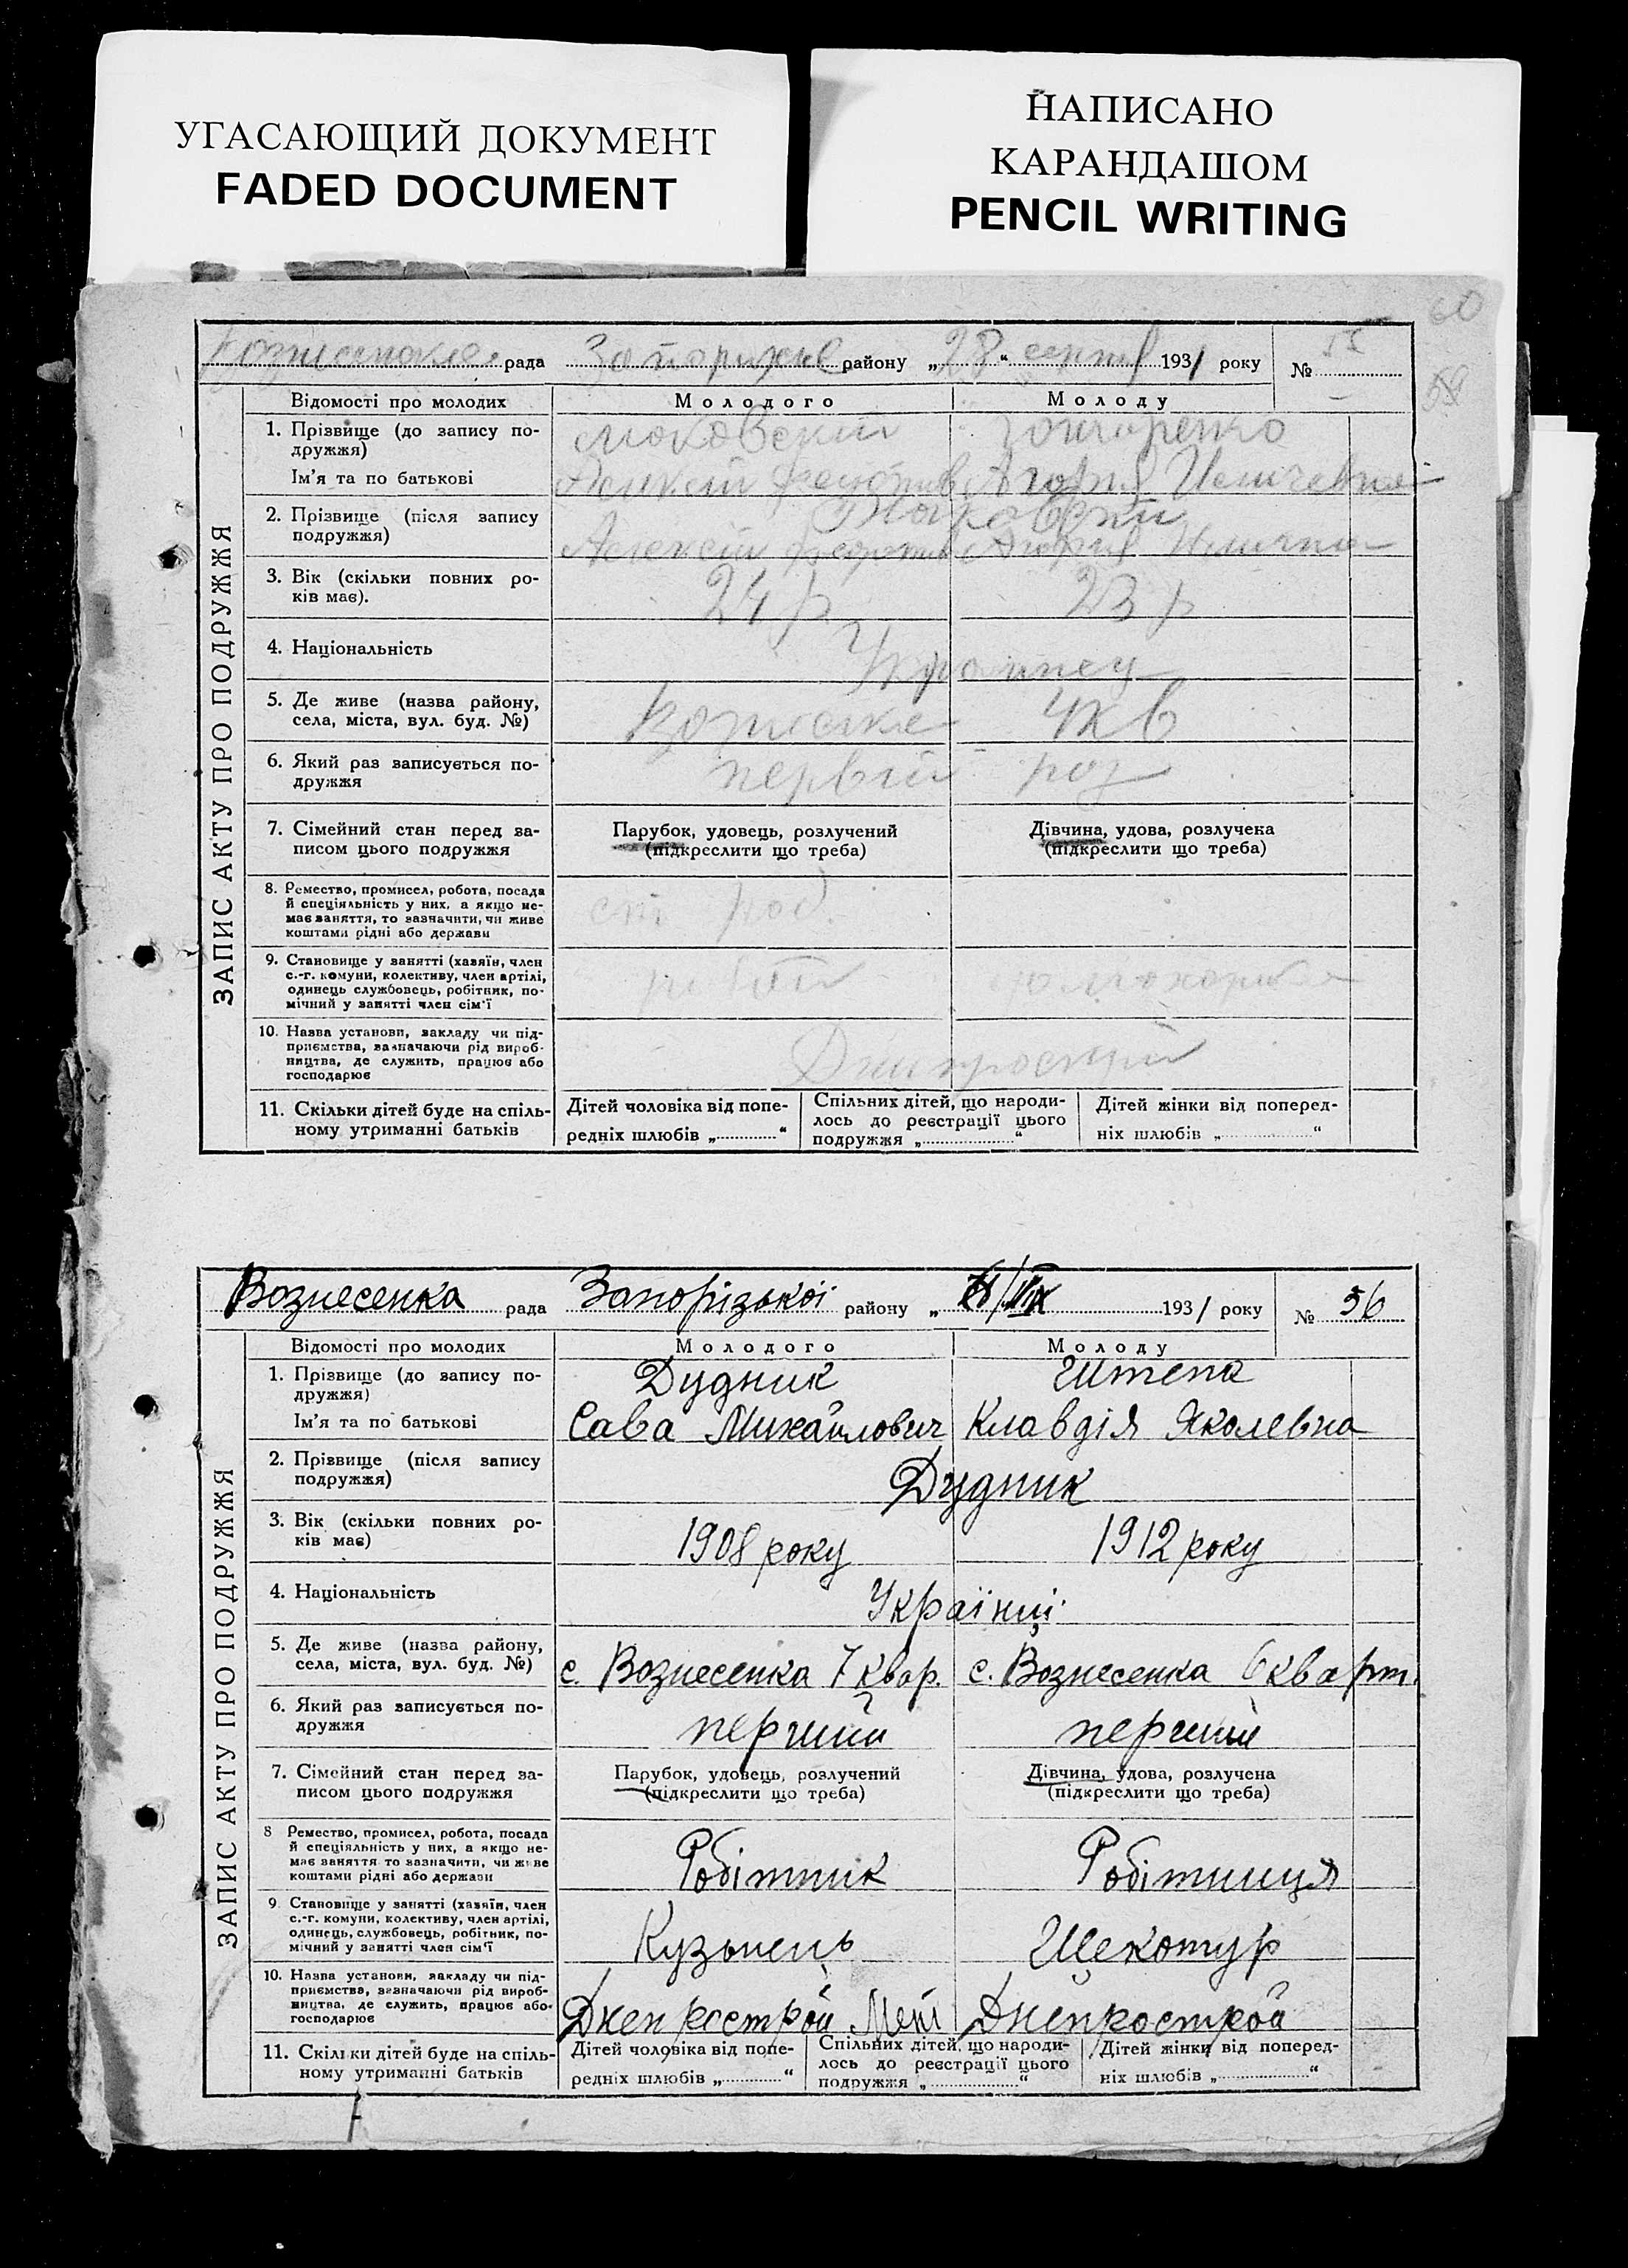 УГАСАЮЩИЙ ДОКУМЕНТ
FADED DOCUMENT
НАПИСАНО
КАРАНДАШОМ
PENCIL WRITING
60
рада района району „28“ 1931 року № 55
59
ЗАПИС АКТУ ПРО ПОДРУЖЖЯ
Відомості про молодих Молодого Молоду
1. Прізвище (до запису по-
дружжя)
Маковский Гончаренко
Ім'я та по батькові
2. Прізвище (після запису
подружжя)
Алексей
3. Вік (скільки повних ро-
ків має).
24 р 23 р
4. Національність
Украинец
5. Де живе (назва району,
села, міста, вул. буд. №)
4 кв
6. Який раз записується по-
дружжя
первий раз
7. Сімейний стан перед за-
писом цього подружжя
Парубок, удовець, розлучений
(підкреслити що треба)
Дівчина, удова, розлучека
(підкреслити що треба)
8. Ремество, промисел, робота, посада
й спеціяльність у них, а якщо не-
має заняття, то зазначити, чи живе
коштами рідні або держави
9. Становище у занятті (хазяїн, член
с.-г. комуни, колективу, член артілі,
одинець службовець, робітник, по-
мічний у занятті член сім'ї
10. Назва установи, закладу чи під-
приємства, зазначаючи рід вироб-
ництва, де служить, працює або
господарює
11. Скільки дітей буде на спіль-
ному утриманні батьків
Дітей чоловіка від попе-
редніх шлюбів „ “
Спільних дітей, що народи-
лось до реєстрації цього
подружжя „ “
Дітей жінки від поперед-
ніх шлюбів „ “
Вознесенка рада Запорізької району „ 1931 року № 56
ЗАПИС АКТУ ПРО ПОДРУЖЖЯ
Відомості про молодих Молодого Молоду
1. Прізвище (до запису по-
дружжя)
Дудник Штепа
Ім'я та по батькові
Сава Михайлович Клавдія Яколевна
2. Прізвище (після запису
подружжя)
Дудник
3. Вік (скільки повних ро-
ків має)
1908 року 1912 року
4. Національність
Українці
5. Де живе (назва району,
села, міста, вул. буд. №)
с. Вознесенка 7 квар. с. Вознесенка 6 кварт.
6. Який раз записується по-
дружжя
перший перший
7. Сімейний стан перед за-
писом цього подружжя
Парубок, удовець, розлучений
(підкреслити що треба)
Дівчина, удова, розлучена
(підкреслити що треба)
8 Ремество, промисел, робота, посада
й спеціяльність у них, а якщо не-
має заняття то зазначити, чи живе
коштами рідні або держави
Робітник Робітниця
9 Становище у занятті (хазяїн, член
с.-г. комуни, колективу, член артілі,
одинець, службовець, робітник, по-
мічний у занятті член сім'ї
Кузьнець Щекотур
10. Назва установи, закладу чи під-
приємства, зазначаючи рід вироб-
ництва, де служить, працює або
господарює
Днепрострой Днепрострой
11. Скільки дітей буде на спіль-
ному утриманні батьків
Дітей чоловіка від попе-
редніх шлюбів „ “
Спільних дітей, що народи-
лось до реєстрації цього
подружжя „ “
Дітей жінки від поперед-
ніх шлюбів „ “